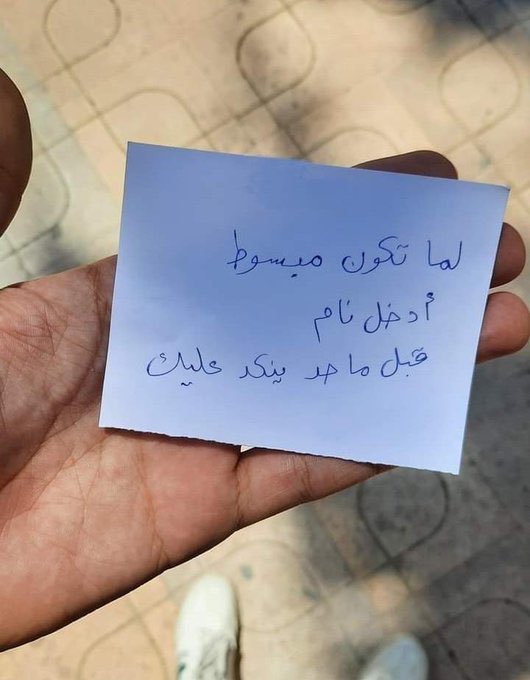 لما تكون مبسوط
أدخل نام
قبل ما حد ينكد عليك